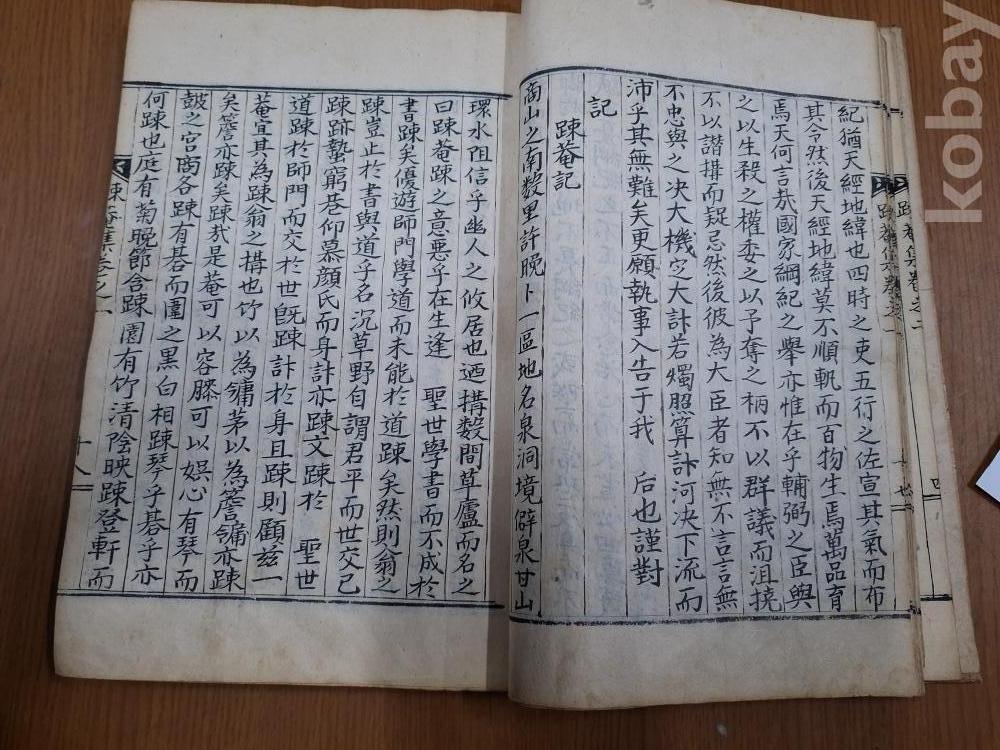 紀猶天經地緯也四時之吏五行之佐宣其氣而布
其令然後天經地緯莫不順軌而百物生焉萬品育
焉天何言哉國家綱紀之舉亦惟在乎輔弼之臣與
之以生殺之權委之以予奪之柄不以群議而沮撓
不以譖搆而疑忌然後彼為大臣者知無不言言無
不忠與之决大機㝎大計若燭照算計河决下流而
沛乎其無難矣更願執事入告于我 后也謹對
記
踈菴記
商山之南數里許晚卜一區地名泉洞境僻泉甘山
環水阻信乎幽人之攸居也迺搆數間草廬而名之
曰踈菴踈之意惡乎在生逢 聖世學書而不成於
書踈矣優遊師門學道而未能於道踈矣然則翁之
踈豈止於書與道乎名沉草野自謂君平而世交已
踈跡蟄窮巷仰慕顔氏而身計亦踈文踈於 聖世
道踈於師門而交於世既踈計於身且踈則顧兹一
菴宜其為踈翁之搆也竹以為牗茅以為簷牗亦踈
矣簷亦踈矣踈哉是菴可以容膝可以娱心有琴而
皷之宮商各踈有碁而圍之黒白相踈琴乎碁乎亦
何踈也庭有菊晚節含踈園有竹清陰映踈登軒而
踈菴集卷之一
十八
kobay